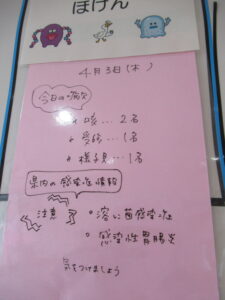 ほけん
4月3日(木)
今日の病欠
咳…2名
受診…1名
様子見…1名
県内の感染症情報
注意
溶レン菌感染症
感染性胃腸炎
気をつけましょう